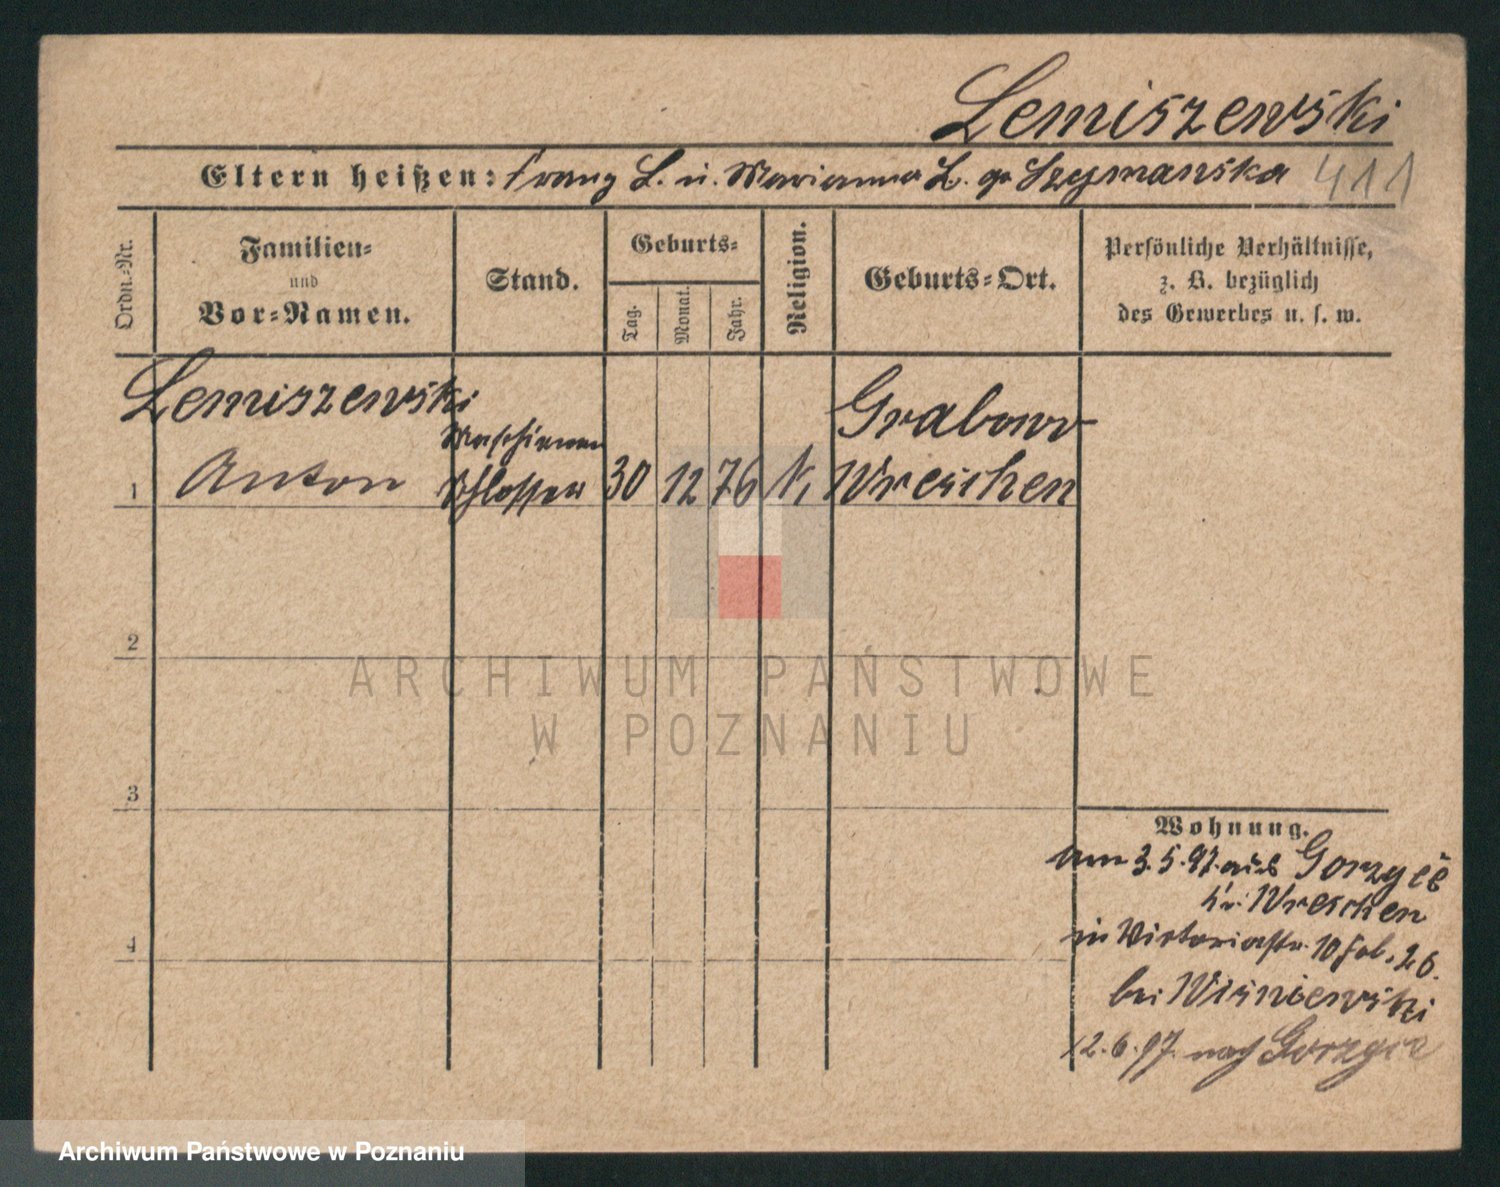 Lemiszewski
Eltern heißen: Franz L. u. Marianna L. ge Szymanska 411
Ordn.-Nr.
Familien-
und
Vor-Namen.
Stand.
Geburts-
Tag.
Monat.
Jahr.
Religion.
Geburts-Ort.
Persönliche Verhältnisse,
z. B. bezüglich
des Gewerbes u. s. w.
Lemiszewski
Maschienen
Grabowo
1 Anton Schlosser 30 12 76 K, Wreschen
2
3
4
Wohnung.
am 3.5.97. aus Gorzyce
bei Wreschen
in Victoriastr. 10 26.
bei Wisniewski
12.6.97. nach Gorzyce
ARCHIWUM PAŃSTWOWE
W POZNANIU
Archiwum Państwowe w Poznaniu